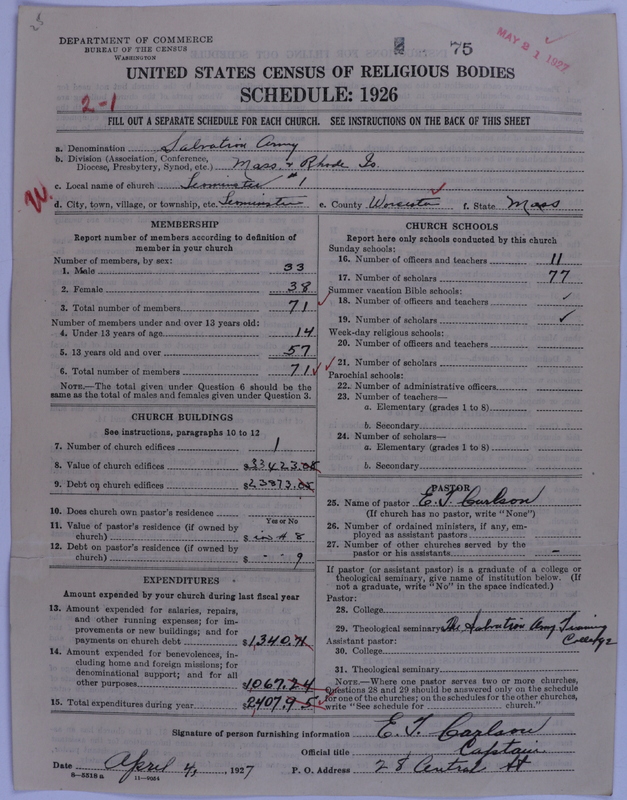 DEPARTMENT OF COMMERCE
BUREAU OF THE CENSUS
WASHINGTON
75
MAY 21 1927
UNITED STATES CENSUS OF RELIGIOUS BODIES
SCHEDULE: 1926
2-1
FILL OUT A SEPARATE SCHEDULE FOR EACH CHURCH. SEE INSTRUCTIONS ON THE BACK OF THIS SHEET
a. Denomination Salvation Army
b. Division (Association, Conference,
Diocese, Presbytery, Synod, etc.) Mass & Rhode Is.
c. Local name of church Leominster #1
W.
d. City, town, village, or township, etc. Leominster e. County Worcester f. State Mass
MEMBERSHIP
Report number of members according to definition of
member in your church
Number of members, by sex:
1. Male 33
2. Female 38
3. Total number of members 71
Number of members under and over 13 years old:
4. Under 13 years of age 14
5. 13 years old and over 57
6. Total number of members 71
NOTE.—The total given under Question 6 should be the
same as the total of males and females given under Question 3.
CHURCH BUILDINGS
See instructions, paragraphs 10 to 12
7. Number of church edifices 1
8. Value of church edifices $33423.
9. Debt on church edifices $23873.
10. Does church own pastor's residence
Yes or No
11. Value of pastor's residence (if owned by
church) $ in # 8
12. Debt on pastor's residence (if owned by
church) $ " " 9
EXPENDITURES
Amount expended by your church during last fiscal year
13. Amount expended for salaries, repairs,
and other running expenses; for im-
provements or new buildings; and for
payments on church debt $1340.71
14. Amount expended for benevolences, in-
cluding home and foreign missions; for
denominational support; and for all
other purposes $1067.24
15. Total expenditures during year $2407.95
CHURCH SCHOOLS
Report here only schools conducted by this church
Sunday schools:
16. Number of officers and teachers 11
17. Number of scholars 77
Summer vacation Bible schools:
18. Number of officers and teachers
19. Number of scholars
Week-day religious schools:
20. Number of officers and teachers
21. Number of scholars
Parochial schools:
22. Number of administrative officers
23. Number of teachers—
a. Elementary (grades 1 to 8)
b. Secondary
24. Number of scholars—
a. Elementary (grades 1 to 8)
b. Secondary
PASTOR
25. Name of pastor E. T. Carlson
(If church has no pastor, write "None")
26. Number of ordained ministers, if any, em-
ployed as assistant pastors
27. Number of other churches served by the
pastor or his assistants –
If pastor (or assistant pastor) is a graduate of a college or
theological seminary, give name of institution below. (If
not a graduate, write "No" in the space indicated.)
Pastor:
28. College
29. Theological seminary The Salvation Army Training
College
Assistant pastor:
30. College
31. Theological seminary
NOTE.—Where one pastor serves two or more churches,
Questions 28 and 29 should be answered only on the schedule
for one of the churches; on the schedules for the other churches,
write "See schedule for church."
Signature of person furnishing information E. T. Carlson
Official title Captain
Date April 4, 1927 P. O. Address 28 Central St
8—5518 a 11—9064